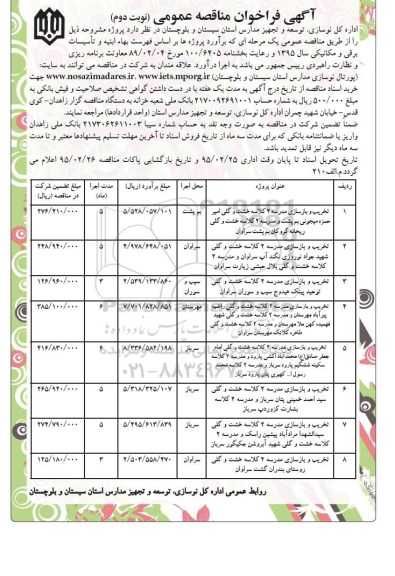 آگهی فراخوان مناقصه عمومی (نوبت دوم)
اداره کل نوسازی، توسعه و تجهیز مدارس استان سیستان و بلوچستان در نظر دارد پروژه مشروحه ذیل
را از طریق مناقصه عمومی یک مرحله ای که برآورد پروژه ها بر اساس فهرست بهاء ابنیه و تأسیسات
برقی و مکانیکی سال ۱۳۹۵ و رعایت بخشنامه ۱۰۰/۶۴۰۵ مورخ ۸۹/۰۲/۰۴ معاونت برنامه ریزی
و نظارت راهبردی رییس جمهور می باشد به اجرا درآورد. علاقه مندان به شرکت در مناقصه می توانند به سایت:
(پورتال نوسازی مدارس استان سیستان و بلوچستان) www.nosazimadares.ir. www.iets.mporg.ir جهت
خرید اسناد مناقصه از تاریخ درج آگهی به مدت یک هفته با در دست داشتن گواهی تشخیص صلاحیت و فیش بانکی به
مبلغ ۵۰۰/۰۰۰ ریال به شماره حساب ۲۱۷۰۰۹۴۶۹۱۰۰۱ بانک ملی شعبه خزانه به دستگاه مناقصه گزار زاهدان- کوی
قدس- خیابان شهید چمران اداره کل نوسازی، توسعه و تجهیز مدارس استان (واحد قراردادها) مراجعه نمایند.
ضمنا تضمین شرکت در مناقصه به صورت وجه نقد به حساب شماره سیبا ۲۱۷۳۰۶۲۶۱۱۰۰۳ بانک ملی زاهدان
واریز یا ضمانتنامه بانکی که برای مدت سه ماه از تاریخ فروش اسناد تا آخرین مهلت تسلیم پیشنهادها معتبر و تا مدت
سه ماه دیگر نیز قابل تمدید باشد.
تاریخ تحویل اسناد تا پایان وقت اداری ۹۵/۰۲/۲۵ و تاریخ بازگشایی پاکات مناقصه ۹۵/۰۲/۲۶ اعلام می
گردد.م.الف۲۱۰
ردیف عنوان پروژه محل اجرا مبلغ برآورد (ریال) مدت اجرا (ماه) مبلغ تضمین شرکت در مناقصه (ریال)
۱ تخریب و بازسازی مدرسه ۳ کلاسه خشت و گلی امیر
حمزه میجونی بم پشت و مدرسه ۲ کلاسه خشت و گلی
ریحانه گوکان بم پشت سراوان
بم پشت ۵/۵۲۸/۰۵۷/۱۰۱ ۵ ۲۷۶/۴۱۰/۰۰۰
۲ تخریب و بازسازی مدرسه ۳ کلاسه خشت و گلی
شهید جواد نوروزی نکند آپ سراوان و مدرسه ۲
کلاسه خشت و گلی بلال حبشی زیارت سراوان
سراوان ۴/۹۷۸/۶۴۸/۰۵۱ ۵ ۲۴۸/۹۴۰/۰۰۰
۳ تخریب و بازسازی مدرسه ۲ کلاسه خشت و گلی
توحید پیتک هیدوج سیب و سوران سراوان
سیب و سوران ۲/۵۳۹/۱۳۳/۸۶۰ ۳ ۱۲۶/۹۶۰/۰۰۰
۴ تخریب و بازسازی مدرسه ۲ کلاسه خشت و گلی
پیرآباد مهرستان و مدرسه ۲ کلاسه خشت و گلی شهید
فهمیده کهن ملا مهرستان و مدرسه ۲ کلاسه خشت و گلی
مهرستان ۷/۷۰۱/۸۲۸/۸۵۱ ۶ ۳۸۵/۱۰۰/۰۰۰
۵ تخریب و بازسازی مدرسه ۳ کلاسه خشت و گلی امام
جعفر صادق(ع) محمدآباد اکشی پارود و مدرسه ۲ کلاسه
سرباز ۸/۳۳۶/۵۸۴/۱۹۸ ۶ ۴۱۶/۸۳۰/۰۰۰
۶ تخریب و بازسازی مدرسه ۳ کلاسه خشت و گلی
سید احمد خمینی پتان سرباز و مدرسه ۲ کلاسه
بشارت کزوردپ سرباز
سرباز ۵/۳۱۸/۳۲۵/۱۰۷ ۵ ۲۶۵/۹۲۰/۰۰۰
۷ تخریب و بازسازی مدرسه ۳ کلاسه خشت و گلی
سیدالشهدا مرادآباد پیشین راسک و مدرسه ۲
کلاسه خشت و گلی شهید آبروشن جکیگور سرباز
سرباز ۵/۴۹۵/۶۱۳/۸۳۹ ۵ ۲۷۴/۷۹۰/۰۰۰
۸ تخریب و بازسازی مدرسه ۲ کلاسه خشت و گلی
روستای بندران گشت سراوان
سراوان ۲/۵۰۳/۵۵۸/۴۷۰ ۳ ۱۲۵/۱۸۰/۰۰۰
روابط عمومی اداره کل نوسازی، توسعه و تجهیز مدارس استان سیستان و بلوچستان